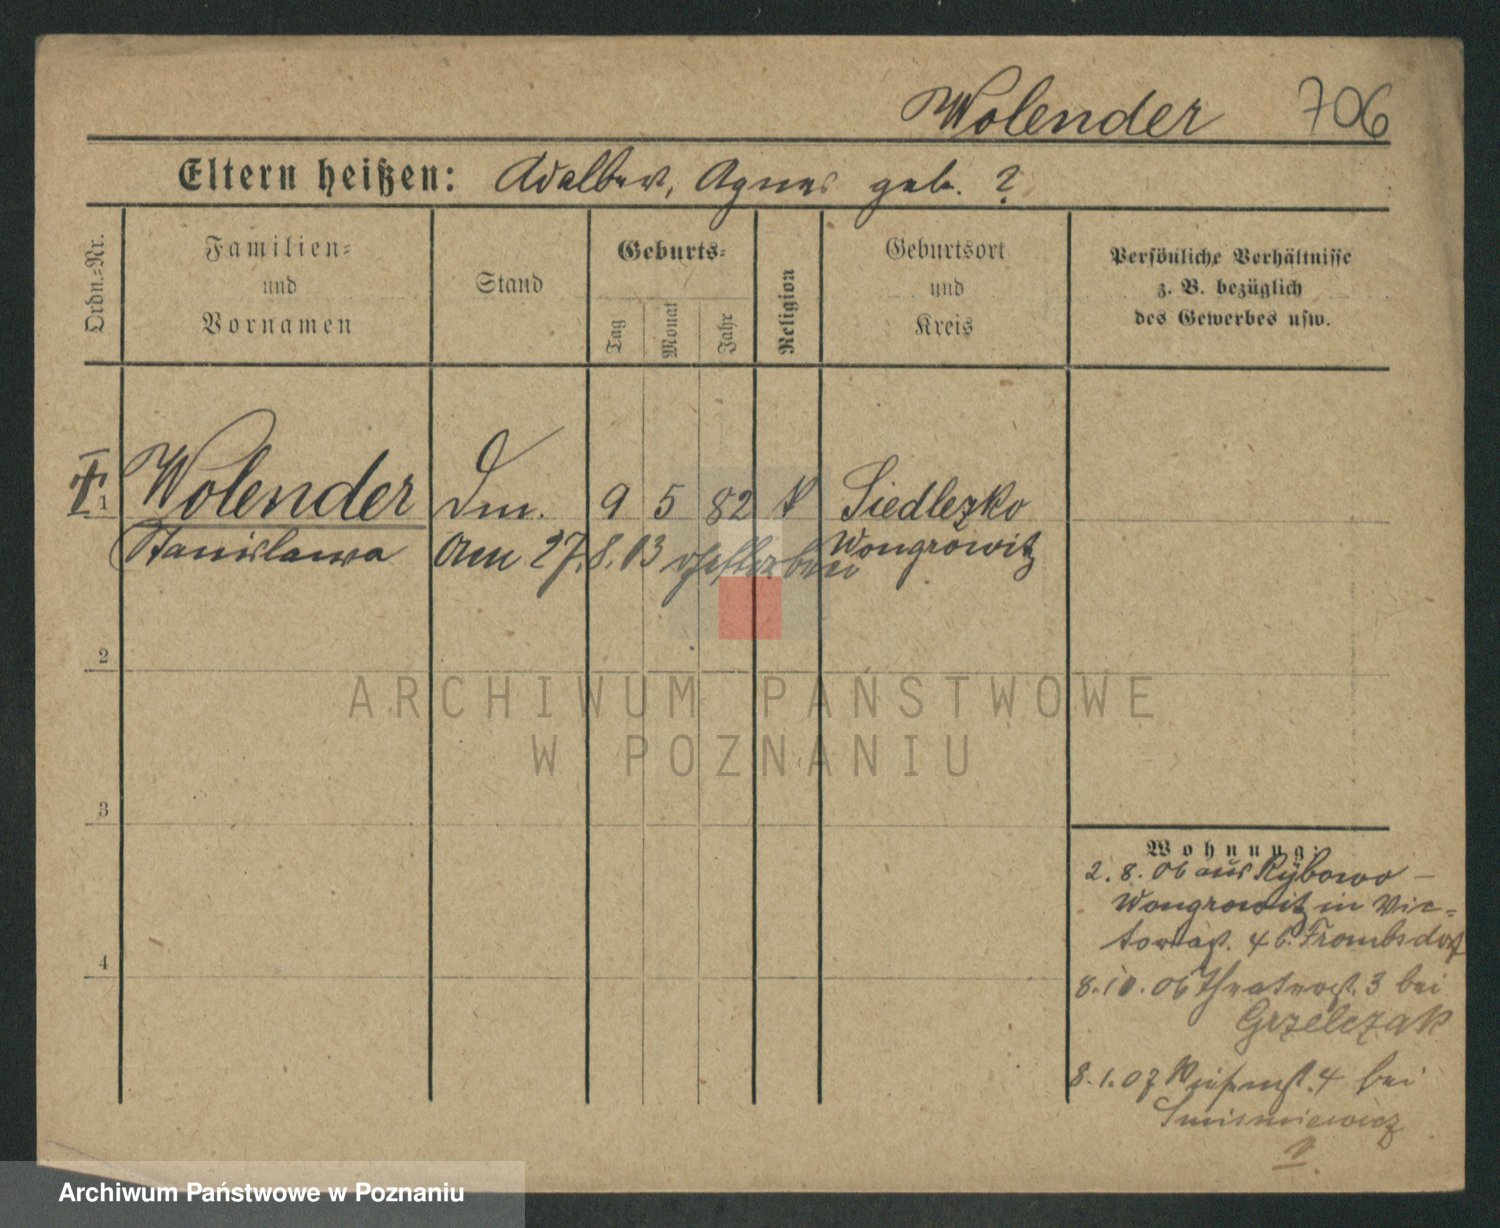 Wolender 706
Eltern heißen: Adalbert, Agnes geb. ?
Ordn.=Nr.
Familien=
und
Vornamen
Stand
Geburts=
Tag
Monat
Jahr
Religion
Geburtsort
und
Kreis
Persönliche Verhältnisse
z. B. bezüglich
des Gewerbes usw.
1 Wolender Dm. 9 5 82 k Siedleczko
Stanislawa Am 27.8.13 gestorben Wongrowitz
2
3
4
Wohnung:
2. 8. 06 aus Rybowo –
Wongrowitz in Vic=
toriast. 4 b. Frombsdorf
8.10.06 Theaterst. 3 bei
Grzelczak
8.1.07 4 bei
?
ARCHIWUM PAŃSTWOWE
W POZNANIU
Archiwum Państwowe w Poznaniu